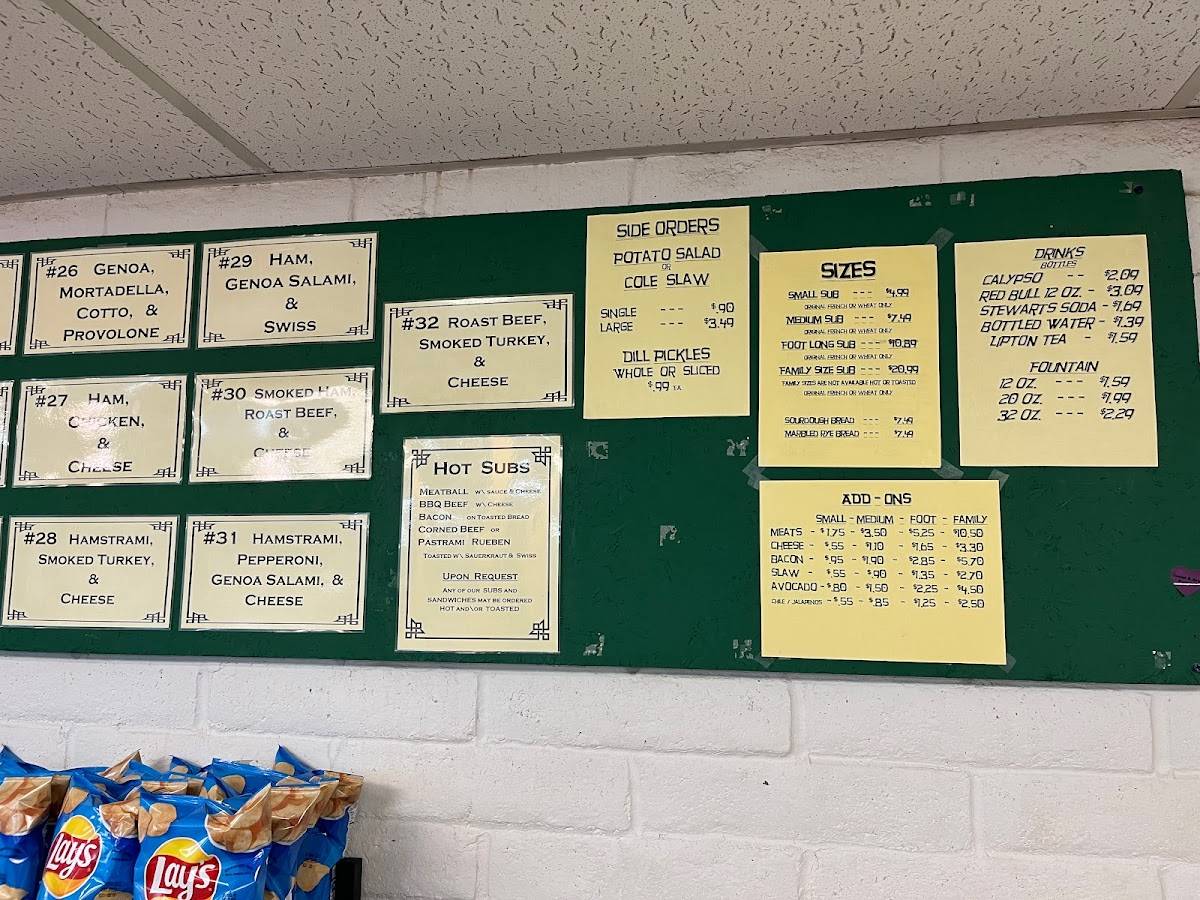 #26 GENOA,
MORTADELLA,
COTTO, &
PROVOLONE
#27 HAM,
CHICKEN,
&
CHEESE
#28 HAMSTRAMI,
SMOKED TURKEY,
&
CHEESE
#29 HAM,
GENOA SALAMI,
&
SWISS
#30 SMOKED HAM,
ROAST BEEF,
&
CHEESE
#31 HAMSTRAMI,
PEPPERONI,
GENOA SALAMI, &
CHEESE
#32 ROAST BEEF,
SMOKED TURKEY,
&
CHEESE
HOT SUBS
MEATBALL W\ SAUCE & CHEESE
BBQ BEEF W\ CHEESE
BACON ON TOASTED BREAD
CORNED BEEF OR
PASTRAMI RUEBEN
TOASTED W\ SAUERKRAUT & SWISS
UPON REQUEST
ANY OF OUR SUBS AND
SANDWICHES MAY BE ORDERED
HOT AND\OR TOASTED
SIDE ORDERS
POTATO SALAD
OR
COLE SLAW
SINGLE --- $.90
LARGE --- $3.49
DILL PICKLES
WHOLE OR SLICED
$.99 EA.
SIZES
SMALL SUB --- $4.99
ORIGINAL FRENCH OR WHEAT ONLY
MEDIUM SUB --- $7.49
ORIGINAL FRENCH OR WHEAT ONLY
FOOT LONG SUB --- $10.89
ORIGINAL FRENCH OR WHEAT ONLY
FAMILY SIZE SUB --- $20.99
FAMILY SIZES ARE NOT AVAILABLE HOT OR TOASTED
ORIGINAL FRENCH OR WHEAT ONLY
SOURDOUGH BREAD --- $7.49
MARBLED RYE BREAD --- $7.49
DRINKS
BOTTLES
CALYPSO -- $2.09
RED BULL 12 OZ. - $3.09
STEWART'S SODA - $1.69
BOTTLED WATER - $1.39
LIPTON TEA - $1.59
FOUNTAIN
12 OZ. --- $1.59
20 OZ. --- $1.99
32 OZ. --- $2.29
ADD-ONS
SMALL - MEDIUM - FOOT - FAMILY
MEATS - $1.75 - $3.50 - $5.25 - $10.50
CHEESE - $.55 - $1.10 - $1.65 - $3.30
BACON - $.95 - $1.90 - $2.85 - $5.70
SLAW - $.55 - $.90 - $1.35 - $2.70
AVOCADO - $.80 - $1.50 - $2.25 - $4.50
CHILE / JALAPENOS - $.55 - $.85 - $1.25 - $2.50
Lay's
Lay's